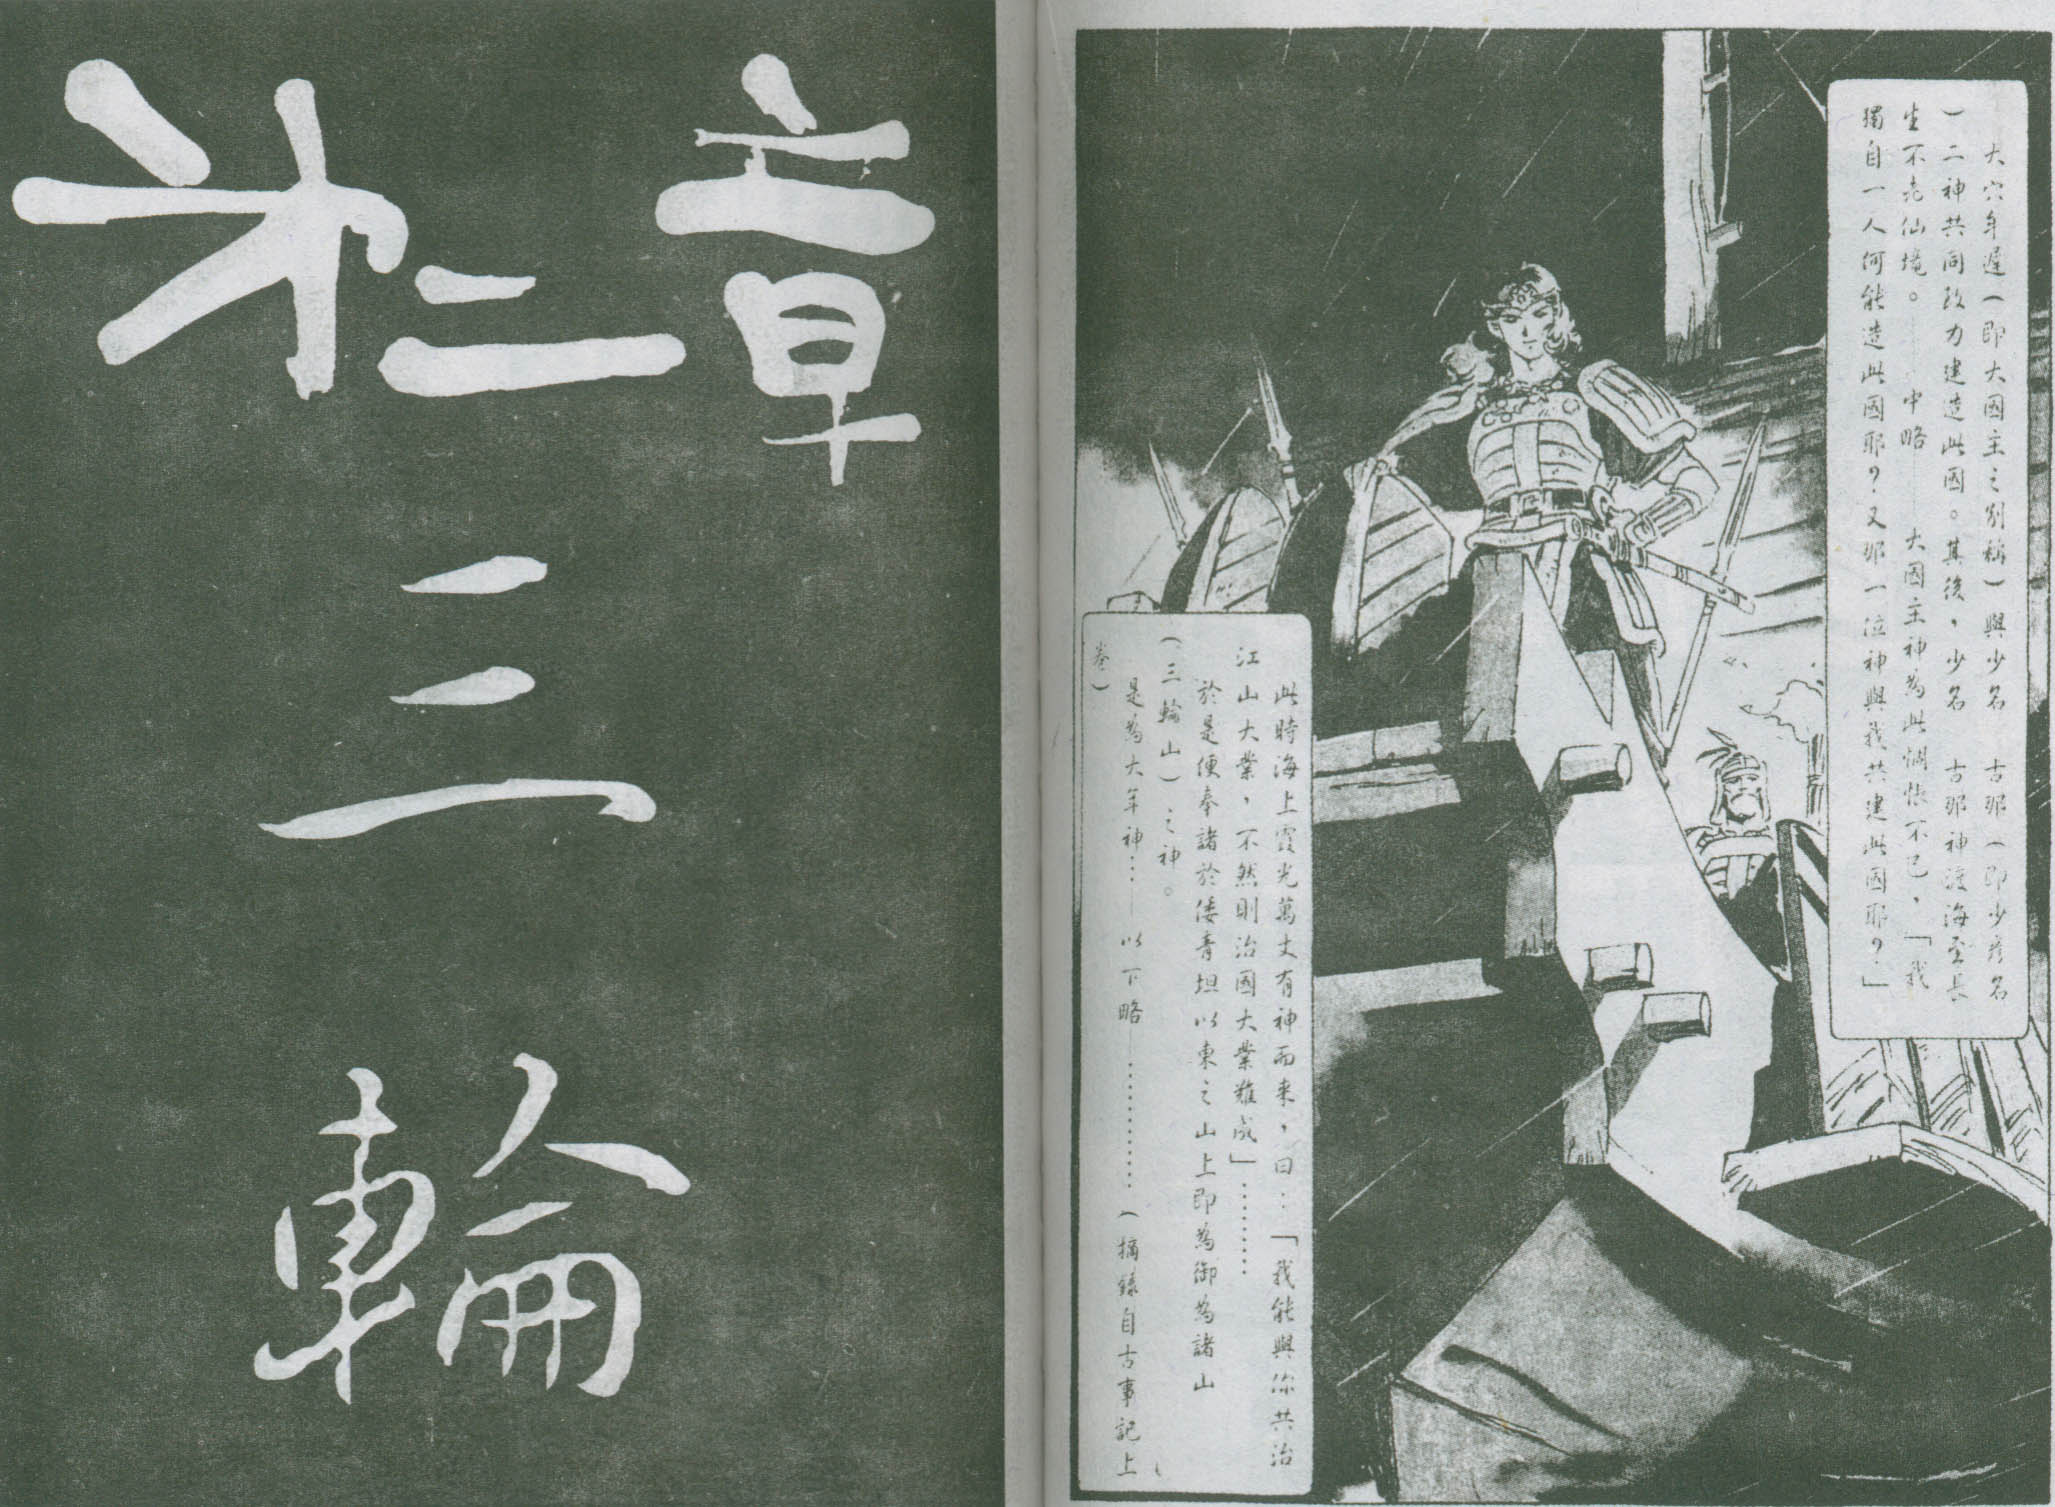 大穴牟遲（即大國主之別稱）與少名 古那（即少彥名
）二神共同致力建造此國。其後，少名 古那神渡海至長
生不老仙境。——中略——大國主神為此惆悵不已，「我
獨自一人何能造此國耶？又那一位神與我共建此國耶？」
此時海上霞光萬丈有神而來，曰：「我能與你共治
江山大業，不然則治國大業難成」………
於是便奉諸於倭青垣以東之山上即為御為諸山
（三輪山）之神。
是為大年神…——以下略——…………（摘錄自古事記上
卷）
第二章
三輪